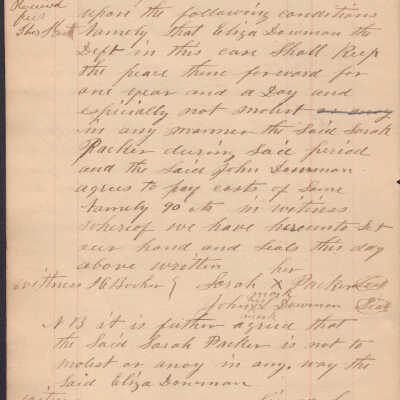 Received upon the following conditions
Namely that Eliza Dowman the
Deft in this case Shall Keep
the peace there forward for
one year and a Day and
especially not molest or anoy
in any manner the Said Sarah
Packer during Said period
and the Said John Dowman
agrees to pay costs of Same
Namely 90 cts in witness
whereof we have hereunto Set
our hand and Seals this day
above written
her
Sarah X Packer Seal
mark
John X Dowman Seal
mark
N B it is futher agreed that
the Said Sarah Packer is not to
molest or anoy in any way the
Said Eliza Dowman